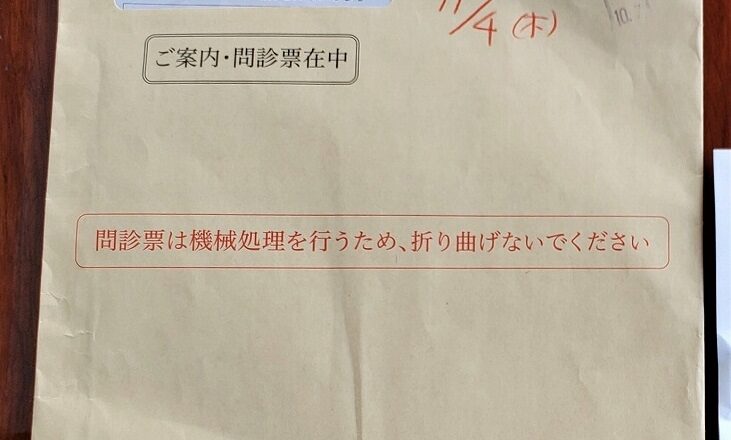 11/4 (木)
ご案内・問診票在中
問診票は機械処理を行うため、折り曲げないでください